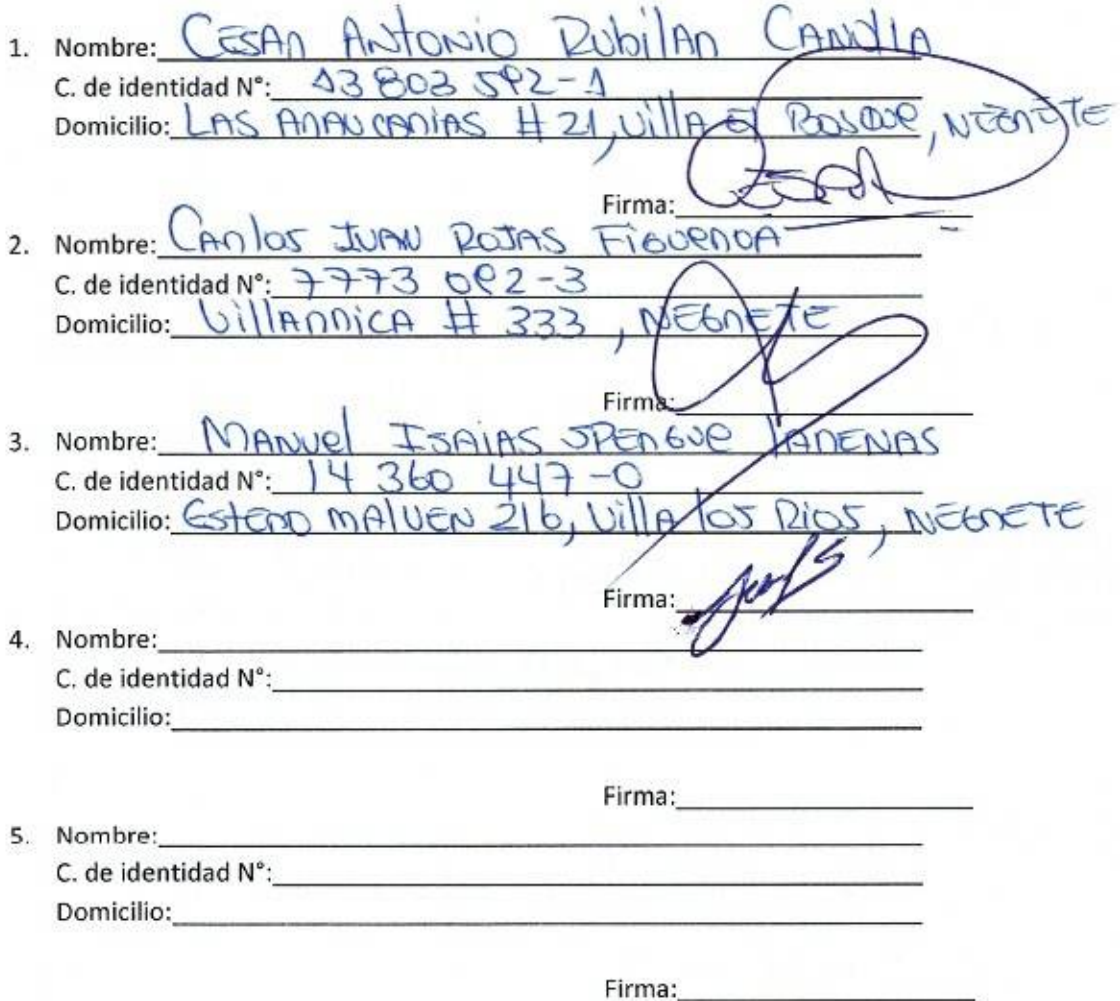 1. Nombre: CESAR ANTONIO RUBILAR CANDIA
C. de identidad N°: 13 803 592-1
Domicilio: LAS ARAUCARIAS #21, VILLA El BOSQUE, NEGRETE
Firma: CESAR
2. Nombre: CARlos JUAN ROJAS FIGUEROA
C. de identidad N°: 7773 092-3
Domicilio: VillARRICA # 333, NEGRETE
Firma:
3. Nombre: MANUEl ISAIAS
C. de identidad N°: 14 360 447-0
Domicilio: ESTERO MALVEN 216, VillA los RIOS, NEGRETE
Firma:
4. Nombre:
C. de identidad N°:
Domicilio:
Firma:
5. Nombre:
C. de identidad N°:
Domicilio:
Firma: